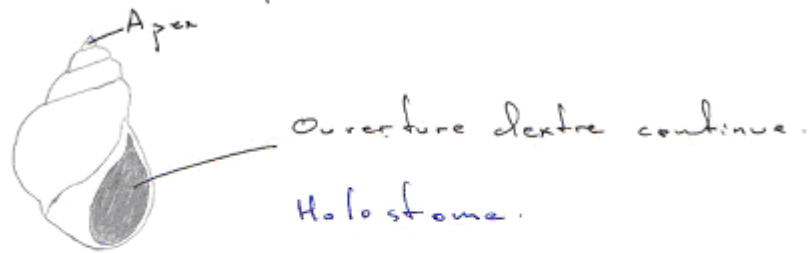 Apex
Ouverture dextre continue.
Holostome.